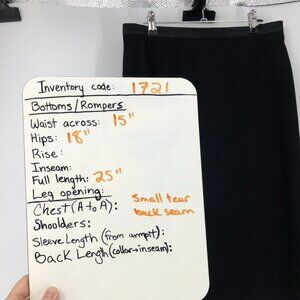 Inventory code: 1721
Bottoms/Rompers
Waist across: 15"
Hips: 18"
Rise:
Inseam:
Full length: 25"
Leg opening:
Chest (A to A): small tear
Shoulders: back seam
Sleeve Length (from armpit):
Back Length (collar→inseam):